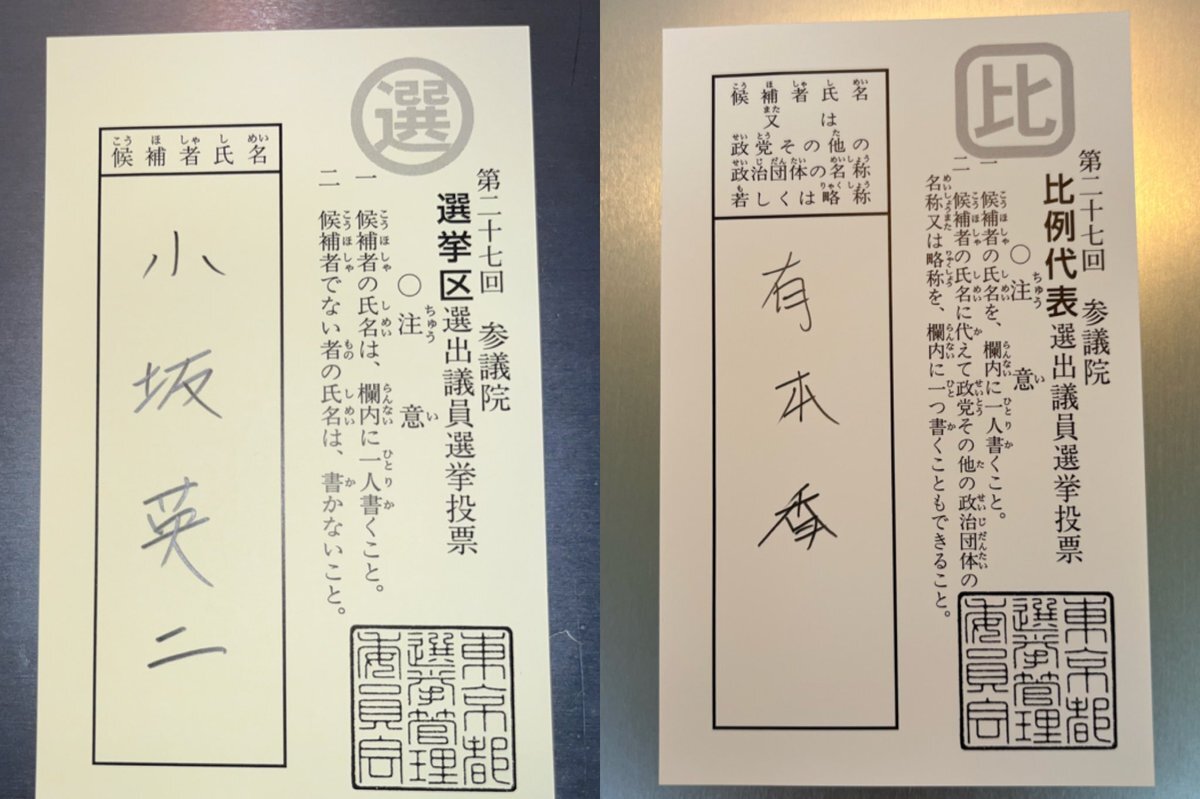 選
第二十七回 参議院
選挙区選出議員選挙投票
○注意
一 候補者の氏名は、欄内に一人書くこと。
二 候補者でない者の氏名は、書かないこと。
候補者氏名
小坂英二
東京都
選挙管理
委員会
比
第二十七回 参議院
比例代表選出議員選挙投票
○注意
一 候補者の氏名を、欄内に一人書くこと。
二 候補者の氏名に代えて政党その他の政治団体の
名称又は略称を、欄内に一つ書くこともできること。
候補者氏名
又は
政党その他の
政治団体の名称
若しくは略称
有本香
東京都
選挙管理
委員会